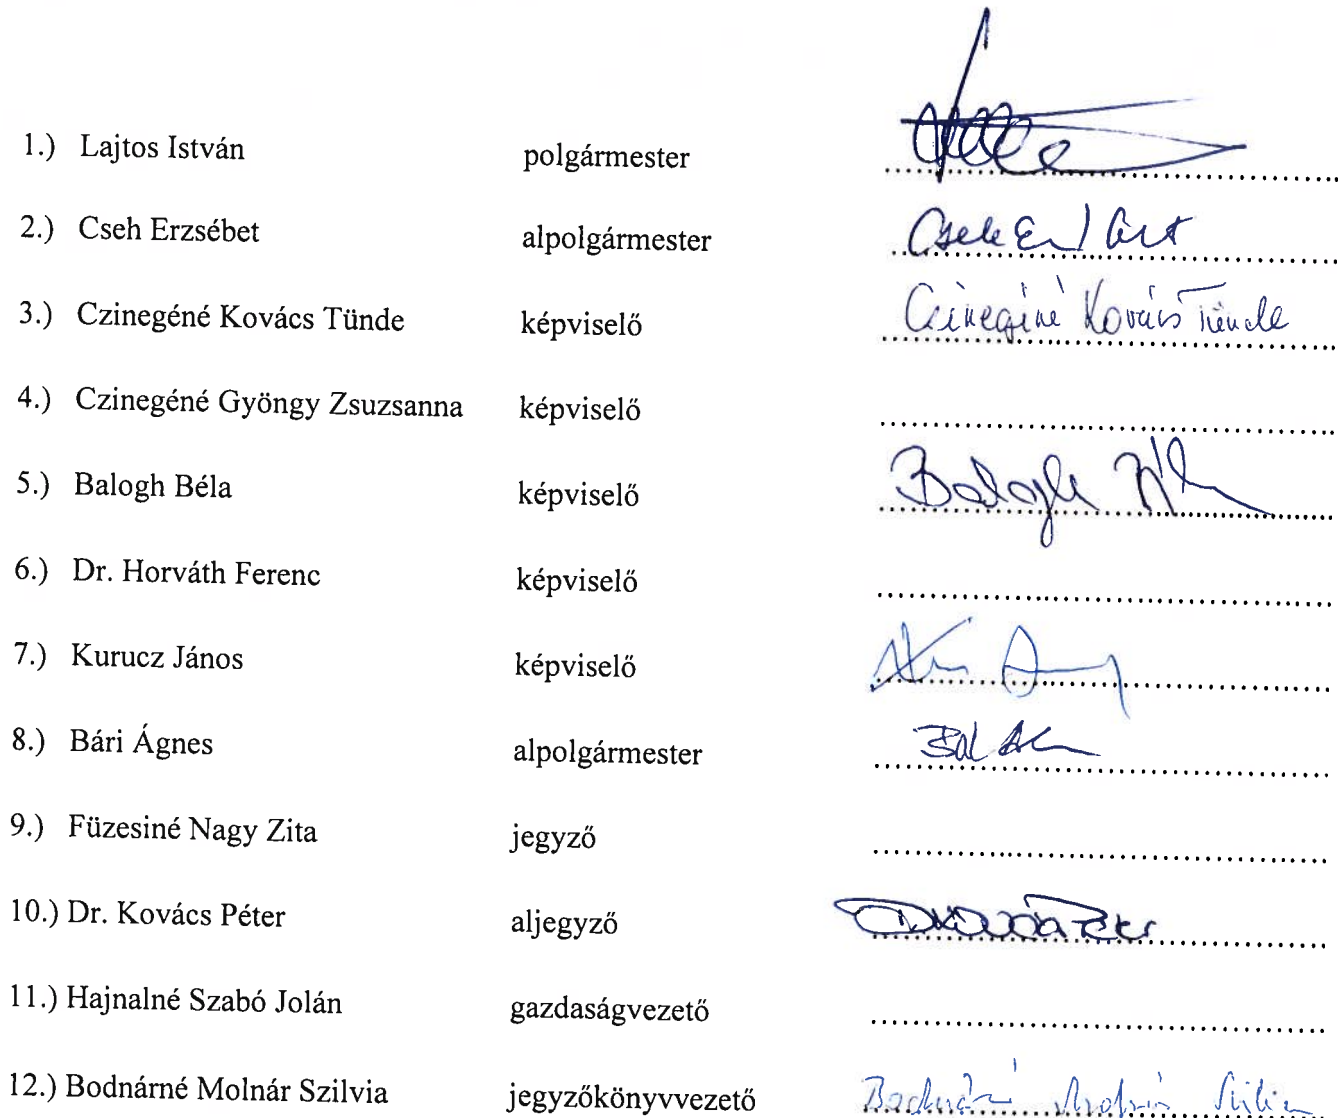 1.) Lajtos István polgármester
2.) Cseh Erzsébet alpolgármester Cseh Erzsébet
3.) Czinegéné Kovács Tünde képviselő Czinegéné Kovács Tünde
4.) Czinegéné Gyöngy Zsuzsanna képviselő
5.) Balogh Béla képviselő Balogh Béla
6.) Dr. Horváth Ferenc képviselő
7.) Kurucz János képviselő
8.) Bári Ágnes alpolgármester
9.) Füzesiné Nagy Zita jegyző
10.) Dr. Kovács Péter aljegyző
11.) Hajnalné Szabó Jolán gazdaságvezető
12.) Bodnárné Molnár Szilvia jegyzőkönyvvezető Bodnárné Molnár Szilvia